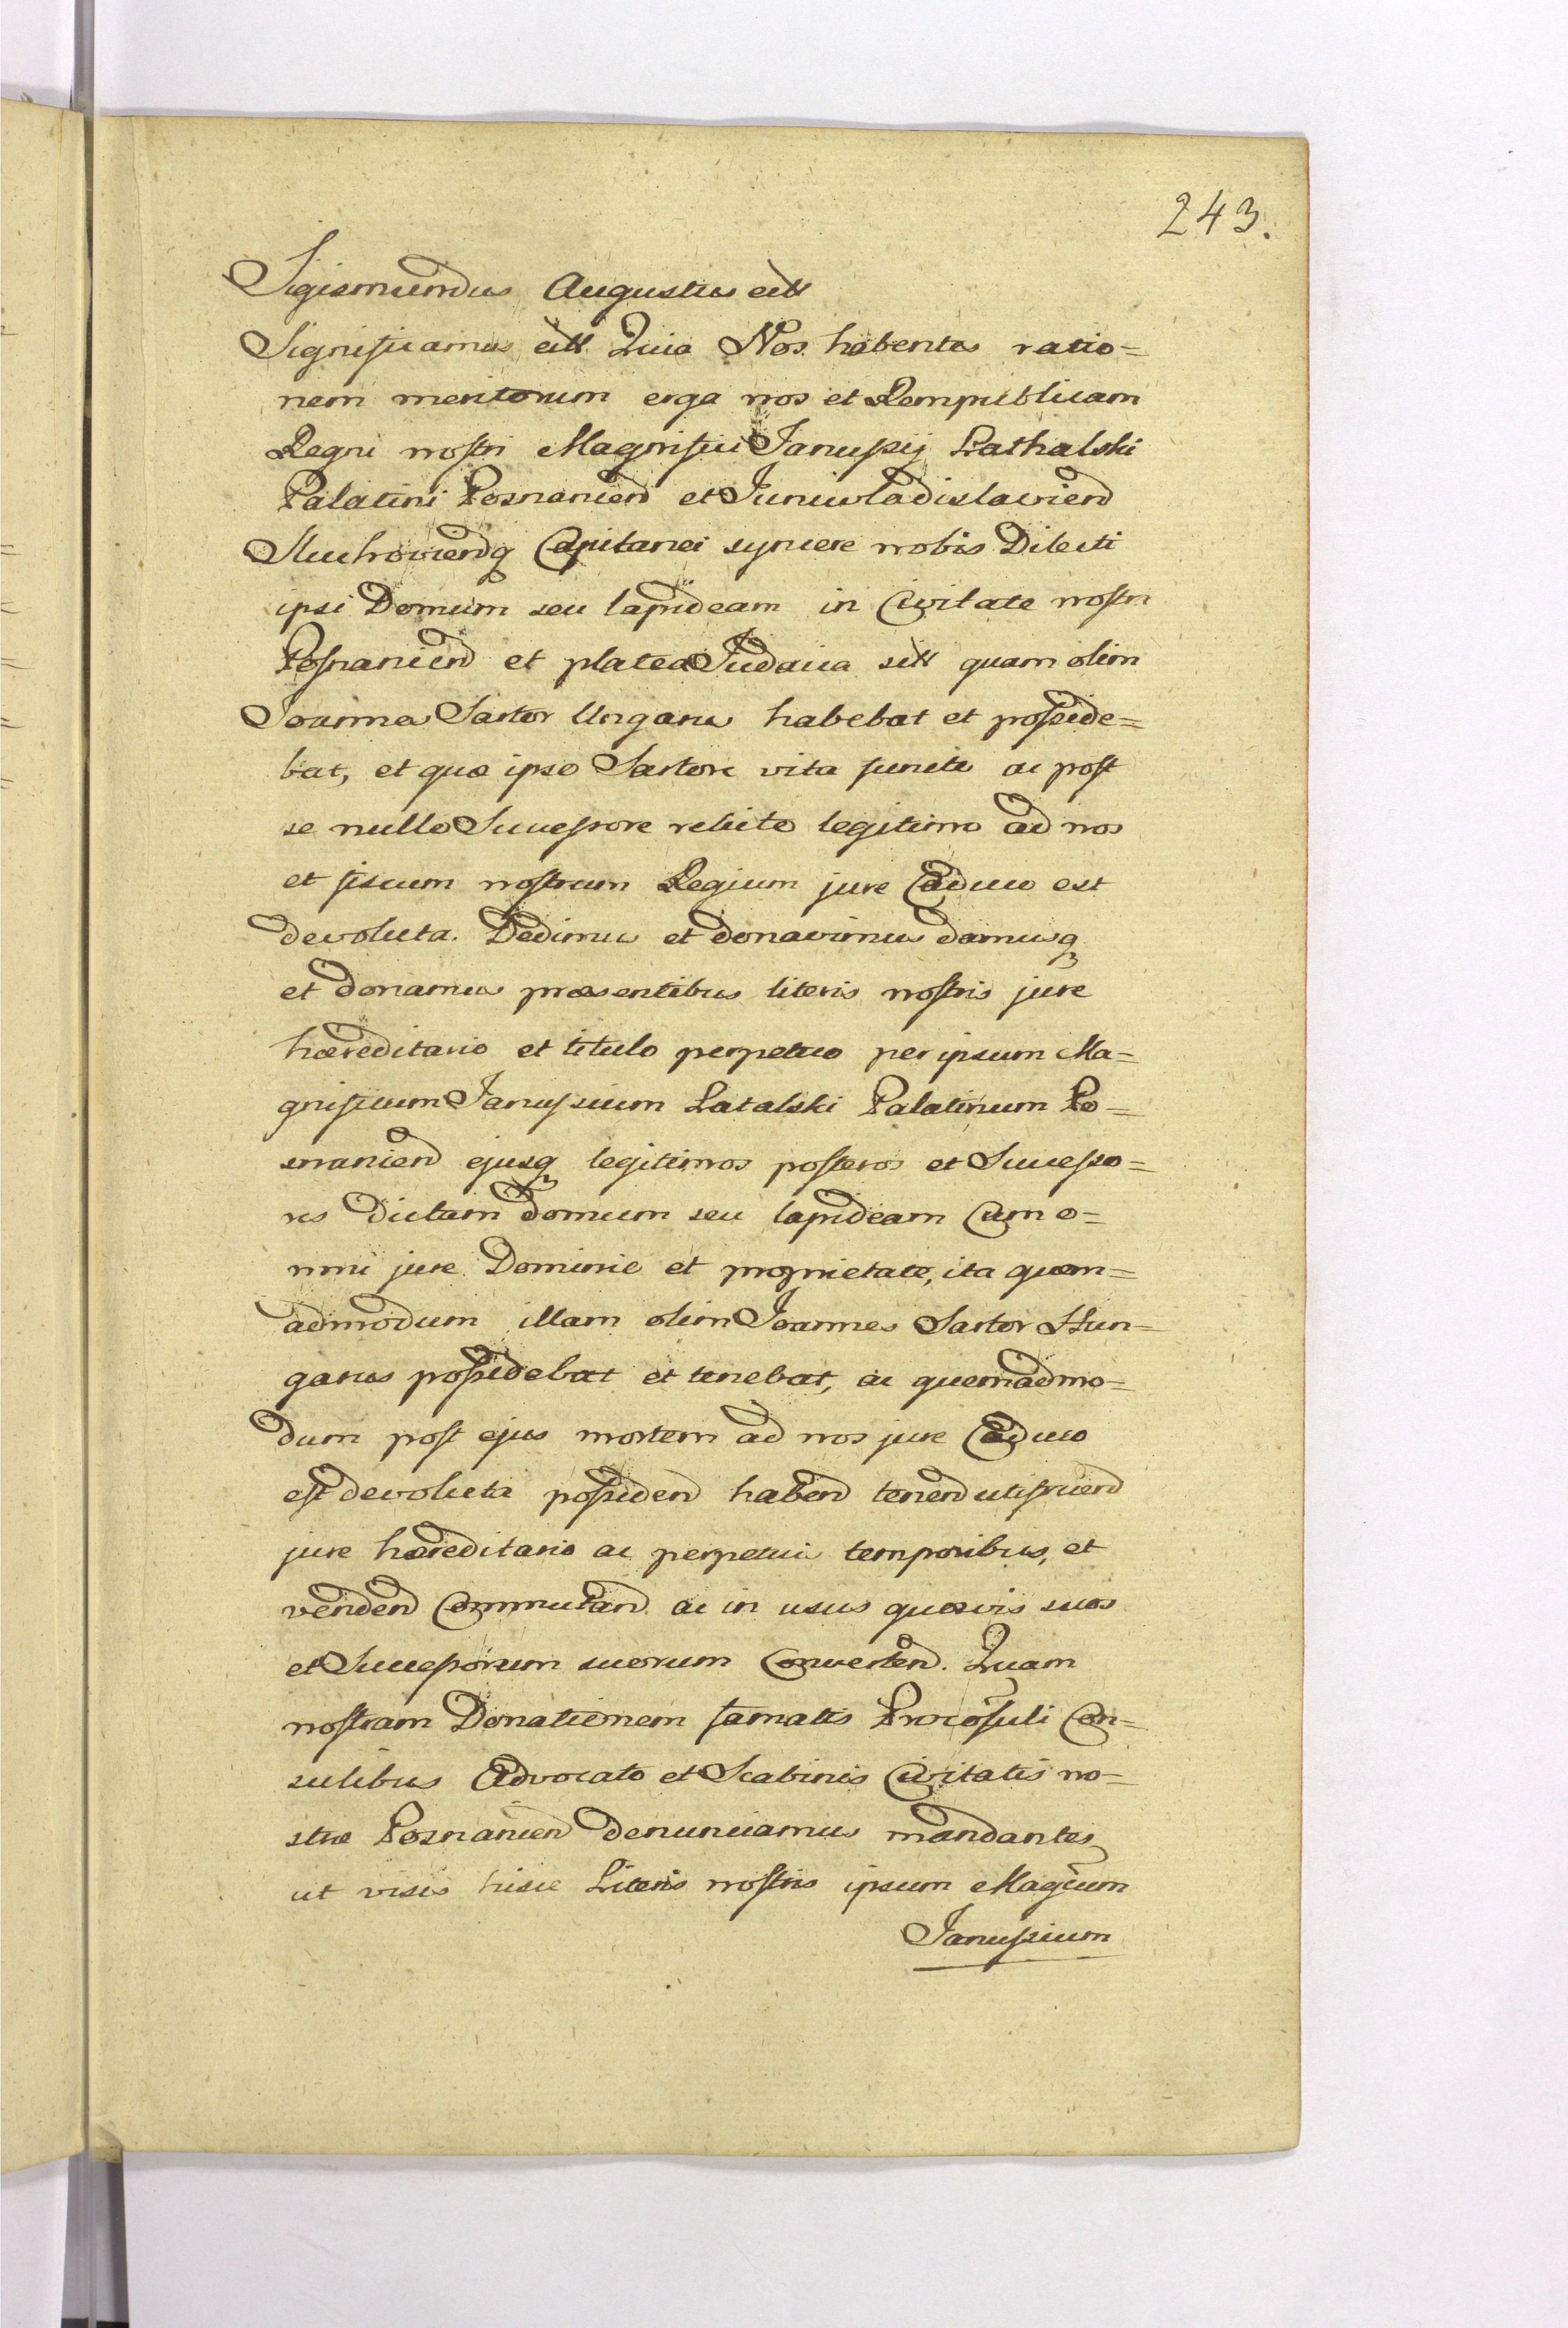 243.
Sigismundus Augustus etc
Significamus etc Quia Nos habentes ratio=
nem meritorum erga nos et Rempublicam
Regni nostri Magnifici Janussij Lathalski
Palatini Posnanien et Juniwladislavien
Sluchoviensq Capitanei syncere nobis Dilecti
ipsi Domum seu lapideam in Civitate nostra
Posnanien et platea Judaica sitt quam olim
Joannes Sartor Ungarus habebat et posside=
bat, et quæ ipso Sartore vita functo ac post
se nullo Successore relicto legitimo ad nos
et fiscum nostrum Regium jure Caduco est
devoluta. Dedimus et donavimus damusq
et donamus præsentibus literis nostris jure
hæreditario et titulo perpetuo per ipsum Ma=
gnificum Janussium Latalski Palatinum Po=
snanien ejusq legitimos posteros et Successo=
res dictam domum seu lapideam Cum o=
mni jure Dominio et proprietate, ita quem=
admodum illam olim Joannes Sartor Hun=
garus possidebat et tenebat, ac quemadmo=
dum post ejus mortem ad nos jure Caduco
est devoluta possiden haben tenen utifruen
jure hæreditario ac perpetuis temporibus, et
venden Commutan ac in usus quosvis suos
et Successorum suorum Converten. Quam
nostram Donationem famatis Procosuli Con=
sulibus Advocato et Scabinis Civitatis no=
stræ Posnanien denunciamus mandantes
ut visis hisce Literis nostris ipsum Magcum
Janussium